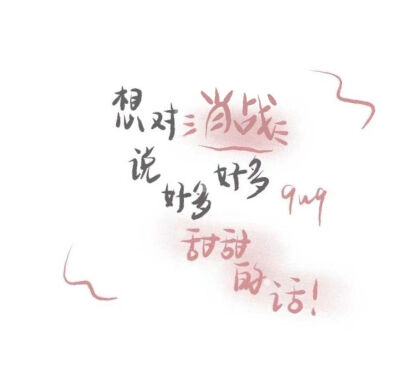 想对肖战
说好多好多
qwq
甜甜
的话！